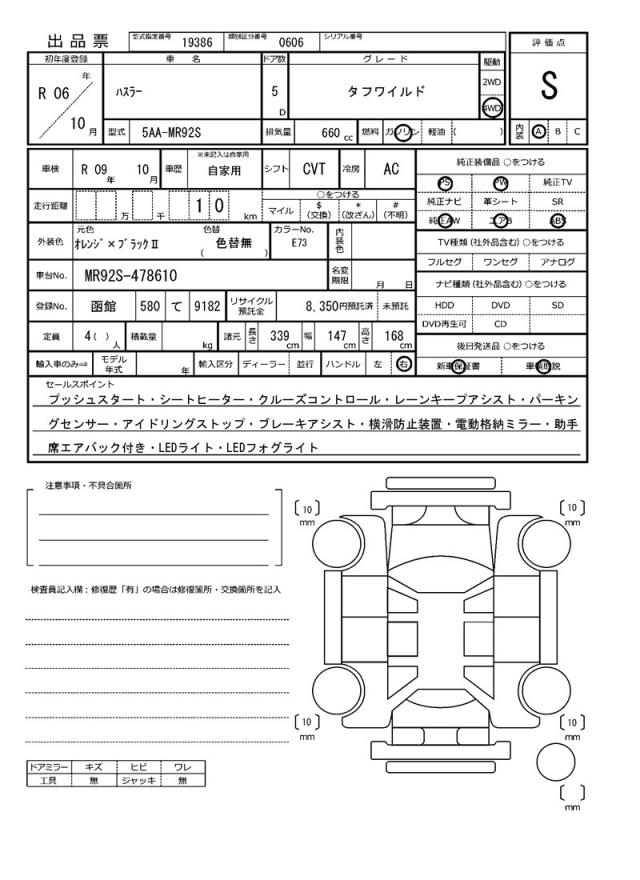 出品票 型式指定番号 19386 類別区分番号 0606 シリアル番号
評価点
S
初年度登録 車名 ドア数 グレード 駆動
R 06 年 10 月 ハスラー 5 D タフワイルド 2WD 4WD
型式 5AA-MR92S 排気量 660 cc 燃料 ガソリン 軽油 ( ) 内装 A B C
車検 R 09 年 10 月 車歴 ※未記入は自家用 自家用 シフト CVT 冷房 AC
純正装備品 ○をつける
PS PW 純正TV
純正ナビ 革シート SR
純正AW エアB ABS
走行距離 万 千 1 0 km ○をつける
マイル $(交換) *(改ざん) #(不明)
外装色 元色 オレンジ×ブラックⅡ 色替 ( 色替無 ) カラーNo. E73 内装色
TV種類 (社外品含む) ○をつける
フルセグ ワンセグ アナログ
車台No. MR92S-478610 名変期限 月 日
ナビ種類 (社外品含む) ○をつける
登録No. 函館 580 て 9182 リサイクル預託金 8,350円預託済 未預託
HDD DVD SD
DVD再生可 CD
定員 4( ) 人 積載量 kg 諸元 長さ 339 cm 幅 147 cm 高さ 168 cm
後日発送品 ○をつける
輸入車のみ⇒ モデル年式 年 輸入区分 ディーラー 並行 ハンドル 左 右 新車保証書 車輌取説
セールスポイント
プッシュスタート・シートヒーター・クルーズコントロール・レーンキープアシスト・パーキン
グセンサー・アイドリングストップ・ブレーキアシスト・横滑防止装置・電動格納ミラー・助手
席エアバック付き・LEDライト・LEDフォグライト
注意事項・不具合箇所
[10] mm [10] mm
検査員記入欄：修復歴「有」の場合は修復箇所・交換箇所を記入
[10] mm [10] mm
ドアミラー キズ ヒビ ワレ
工具 無 ジャッキ 無
[ ] mm